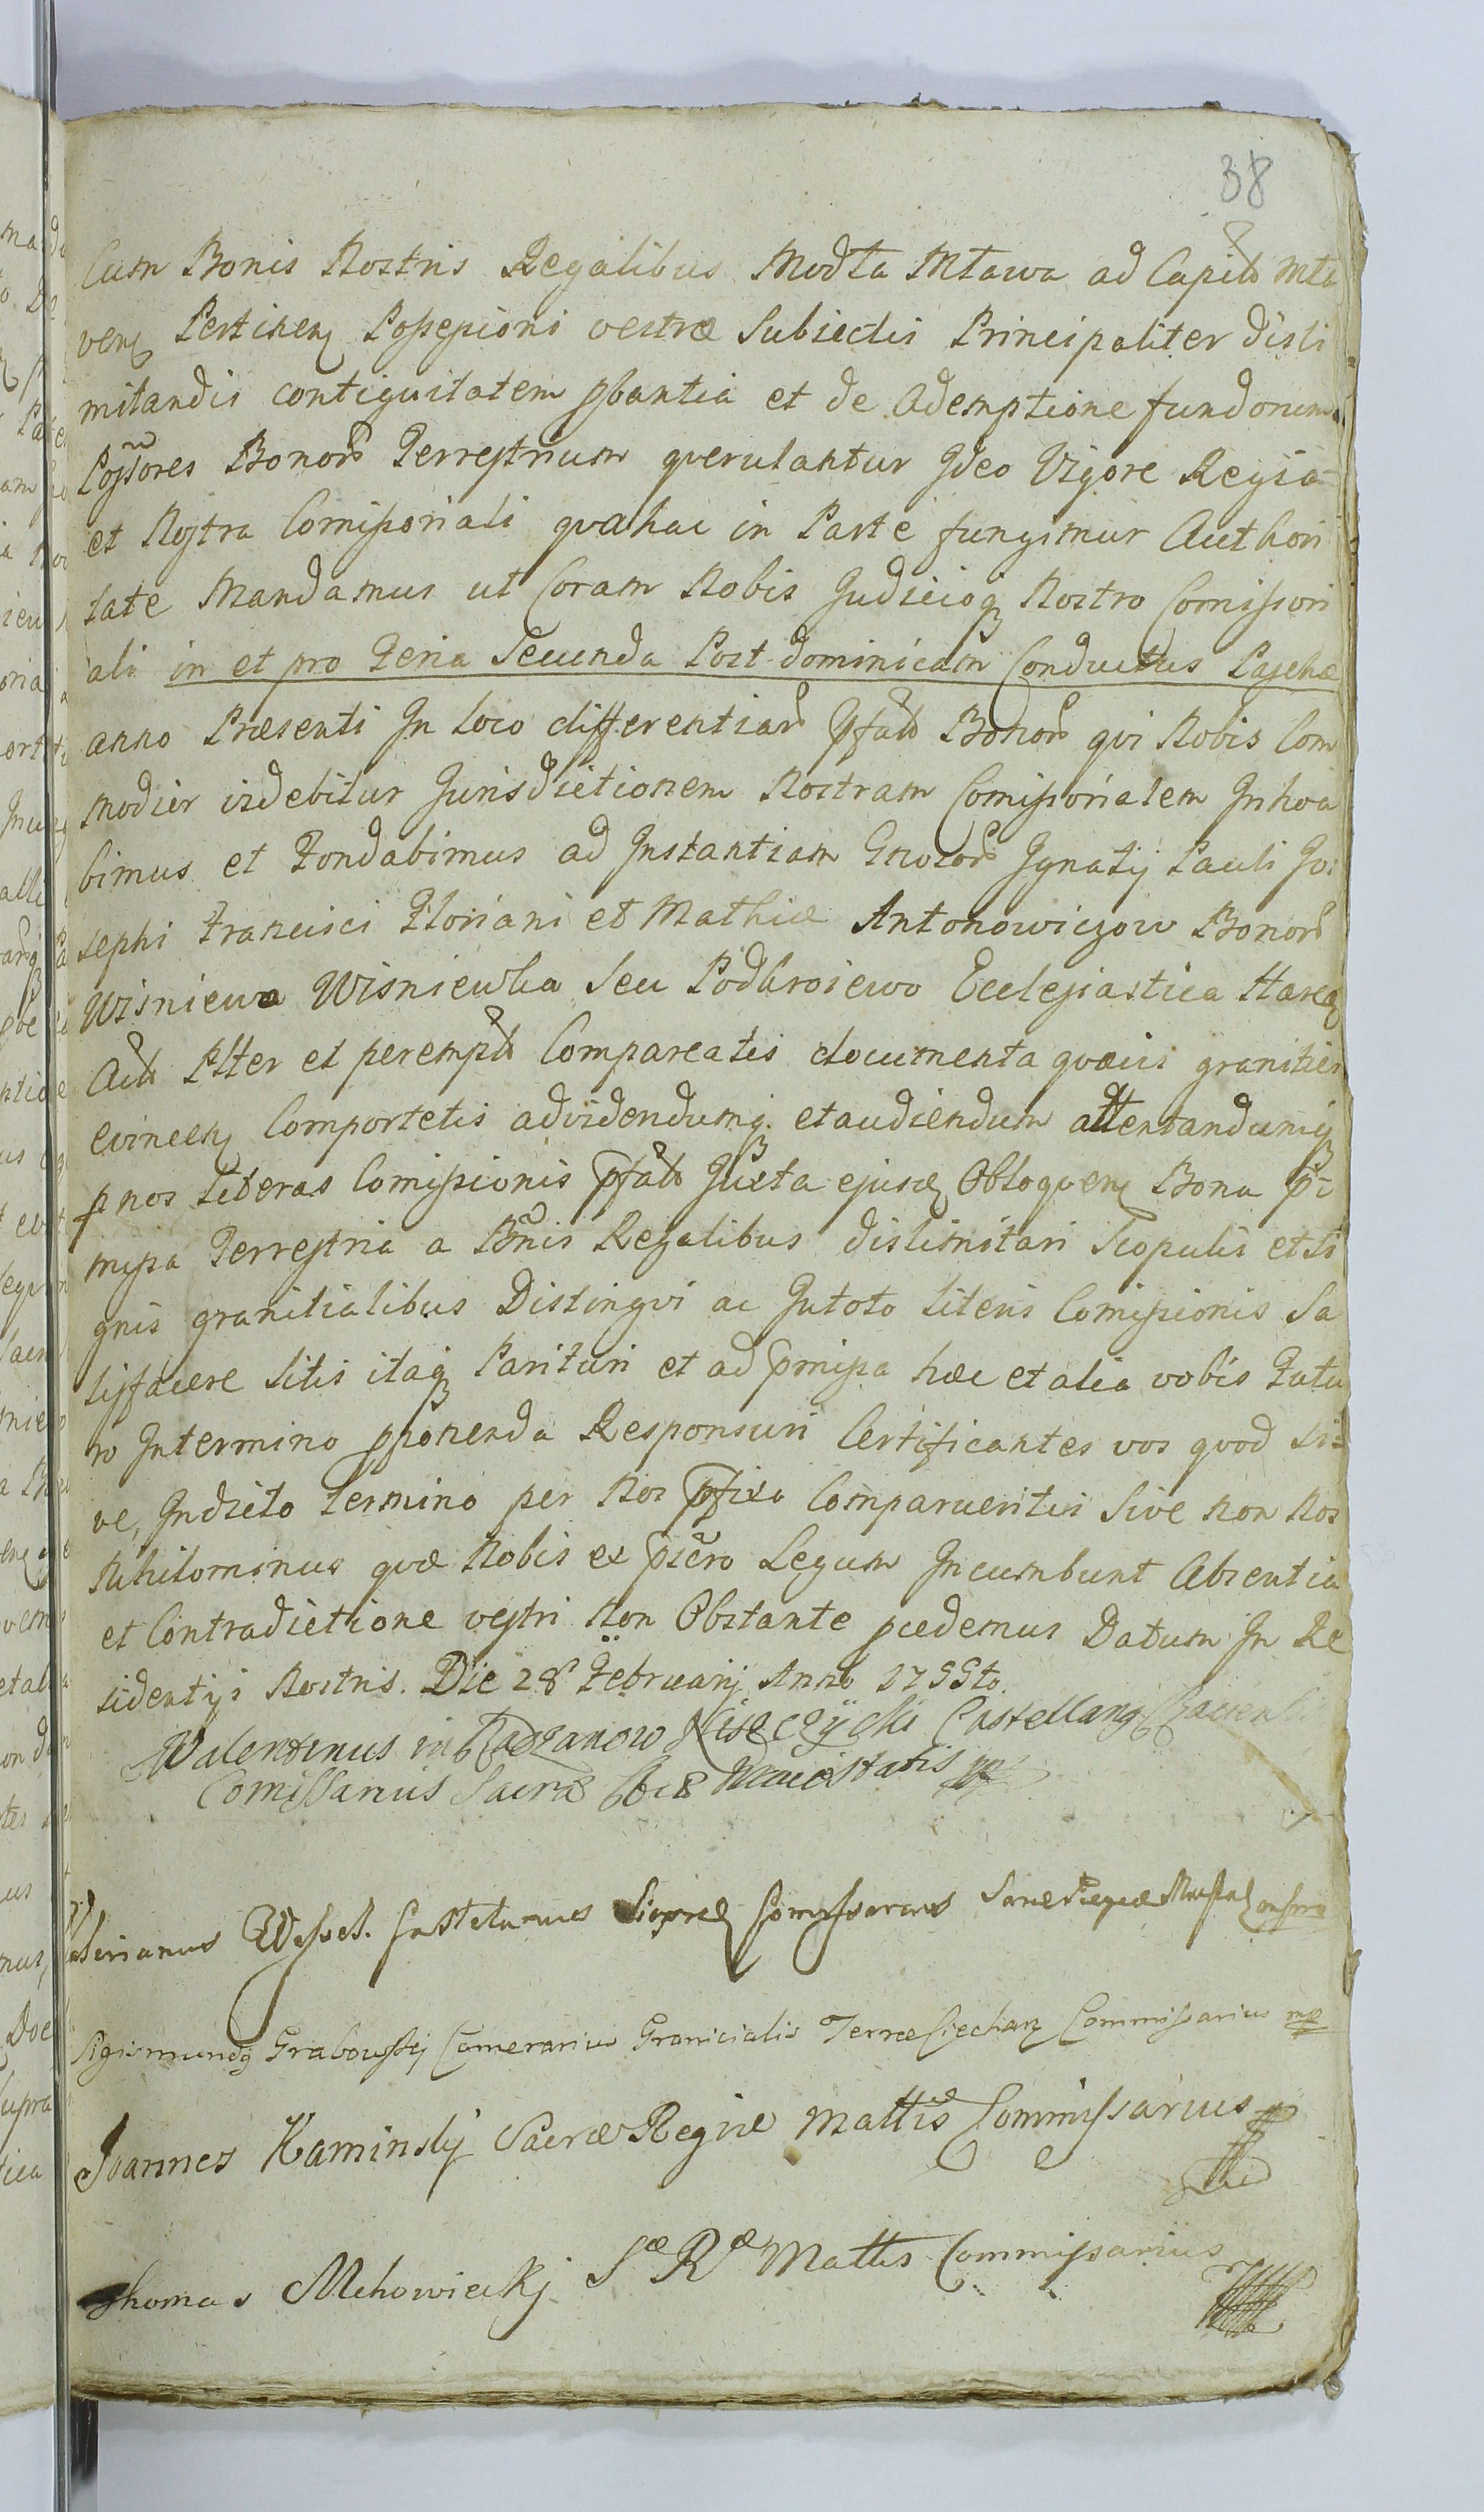 38
Cum Bonis Nostris Regalibus Modta Mława ad Capitb Mła
ven Pertinen Possessioni vestræ Subiectis Principaliter disli
mitandis contiguitatem phantia et de Ademptione fundorum
Possores Bonor Terrestrium querulantur Ideo Vigore Regia
et Nostra Comissoriali qua hac in Parte fungimur Authori
tate Mandamus ut Coram Nobis Judicioq Nostro Comissori
ali in et pro Feria Secunda Post dominicam Conductus Paschæ
anno Præsenti In loco differentiar Pfatb Bonor qvi Nobis Com
modior videbitur Jurisdictionem Nostram Comissorialem Inhoa
bimus et Fondabimus ad Instantiam Gnosor Ignatij Pauli Jo:
sephi Francisci Floriani et Mathiæ Antonowiczow Bonor
Wisniewo Wisniewka Seu Podkrajewo Ecclesiastica Hareg
Actb Plter et peremptb Compareatis documenta qvævis granities
evincen Comportetis advidendumq et audiendum attentandumq
p nos Literas Comissionis pfatb Juxta ejusd Obloqven Bona p̄
missa Terrestria a Bnis Regalibus dislimitari Scopulis et Si
gnis granitialibus Distingvi ac Intoto Literis Comissionis Sa
tisfacere Sitis itaq Parituri et ad pmissa hæc et alia vobis Futu
ro Intermino pponenda Responsuri Certificantes vos quod Si=
ve, Indicto termino per Nos pfixo Comparueritis Sive non Nos
Nihilominus quæ Nobis ex pscro Legum Incumbunt Absentia
et Contradictione vestri Non Obstante pcedemus Datum In Re
sidentijs Nostris. Die 28 Februarij Anno 1755to.
Valentinus in Radzanow Niszczycki Castellanq Racensis
Comissarius Sacræ Rgiæ Maiestatis mp
Valerianus Wessel. Castelanus Comissarius Sacræ Regiæ
Sigismundq Grabowskij Camerarius Granicialis Terræ Ciechan Commissarius mp
Joannes Kaminskij Sacræ Regiæ Mattis Commissarius
Thomas Mchowieckj Sæ Ræ Mattis Commissarius